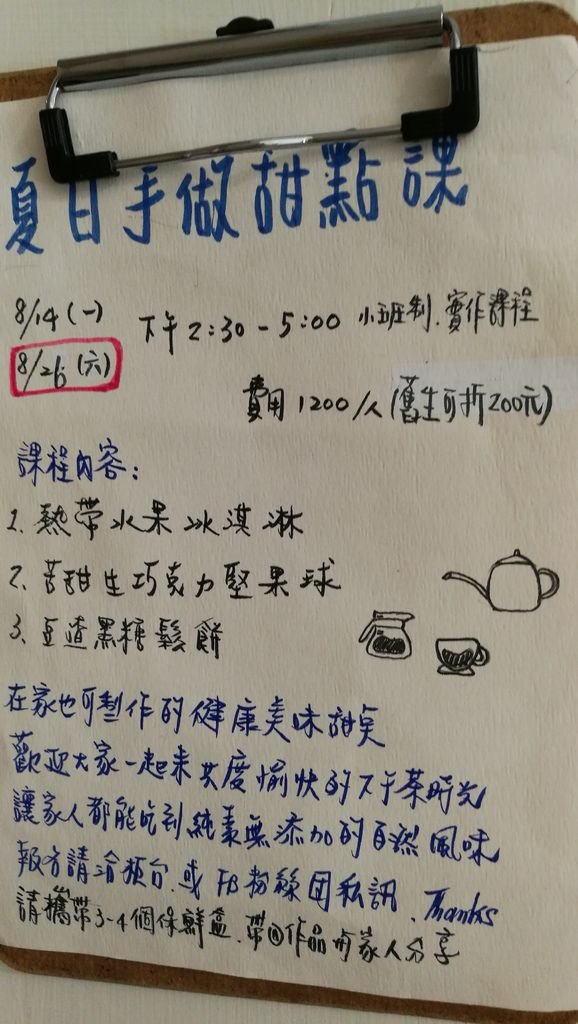 夏日手做甜點課
8/14 (一)
8/26 (六)
下午 2:30 - 5:00 小班制.實作課程
費用 1200/人 (舊生可折200元)
課程內容:
1. 熱帶水果冰淇淋
2. 苦甜生巧克力堅果球
3. 豆渣黑糖鬆餅
在家也可製作的健康美味甜點
歡迎大家一起來共度愉快的下午茶時光
讓家人都能吃到純素無添加的自然風味
報名請洽櫃台.或 FB粉絲團私訊. Thanks
請攜帶3-4個保鮮盒.帶回作品與家人分享